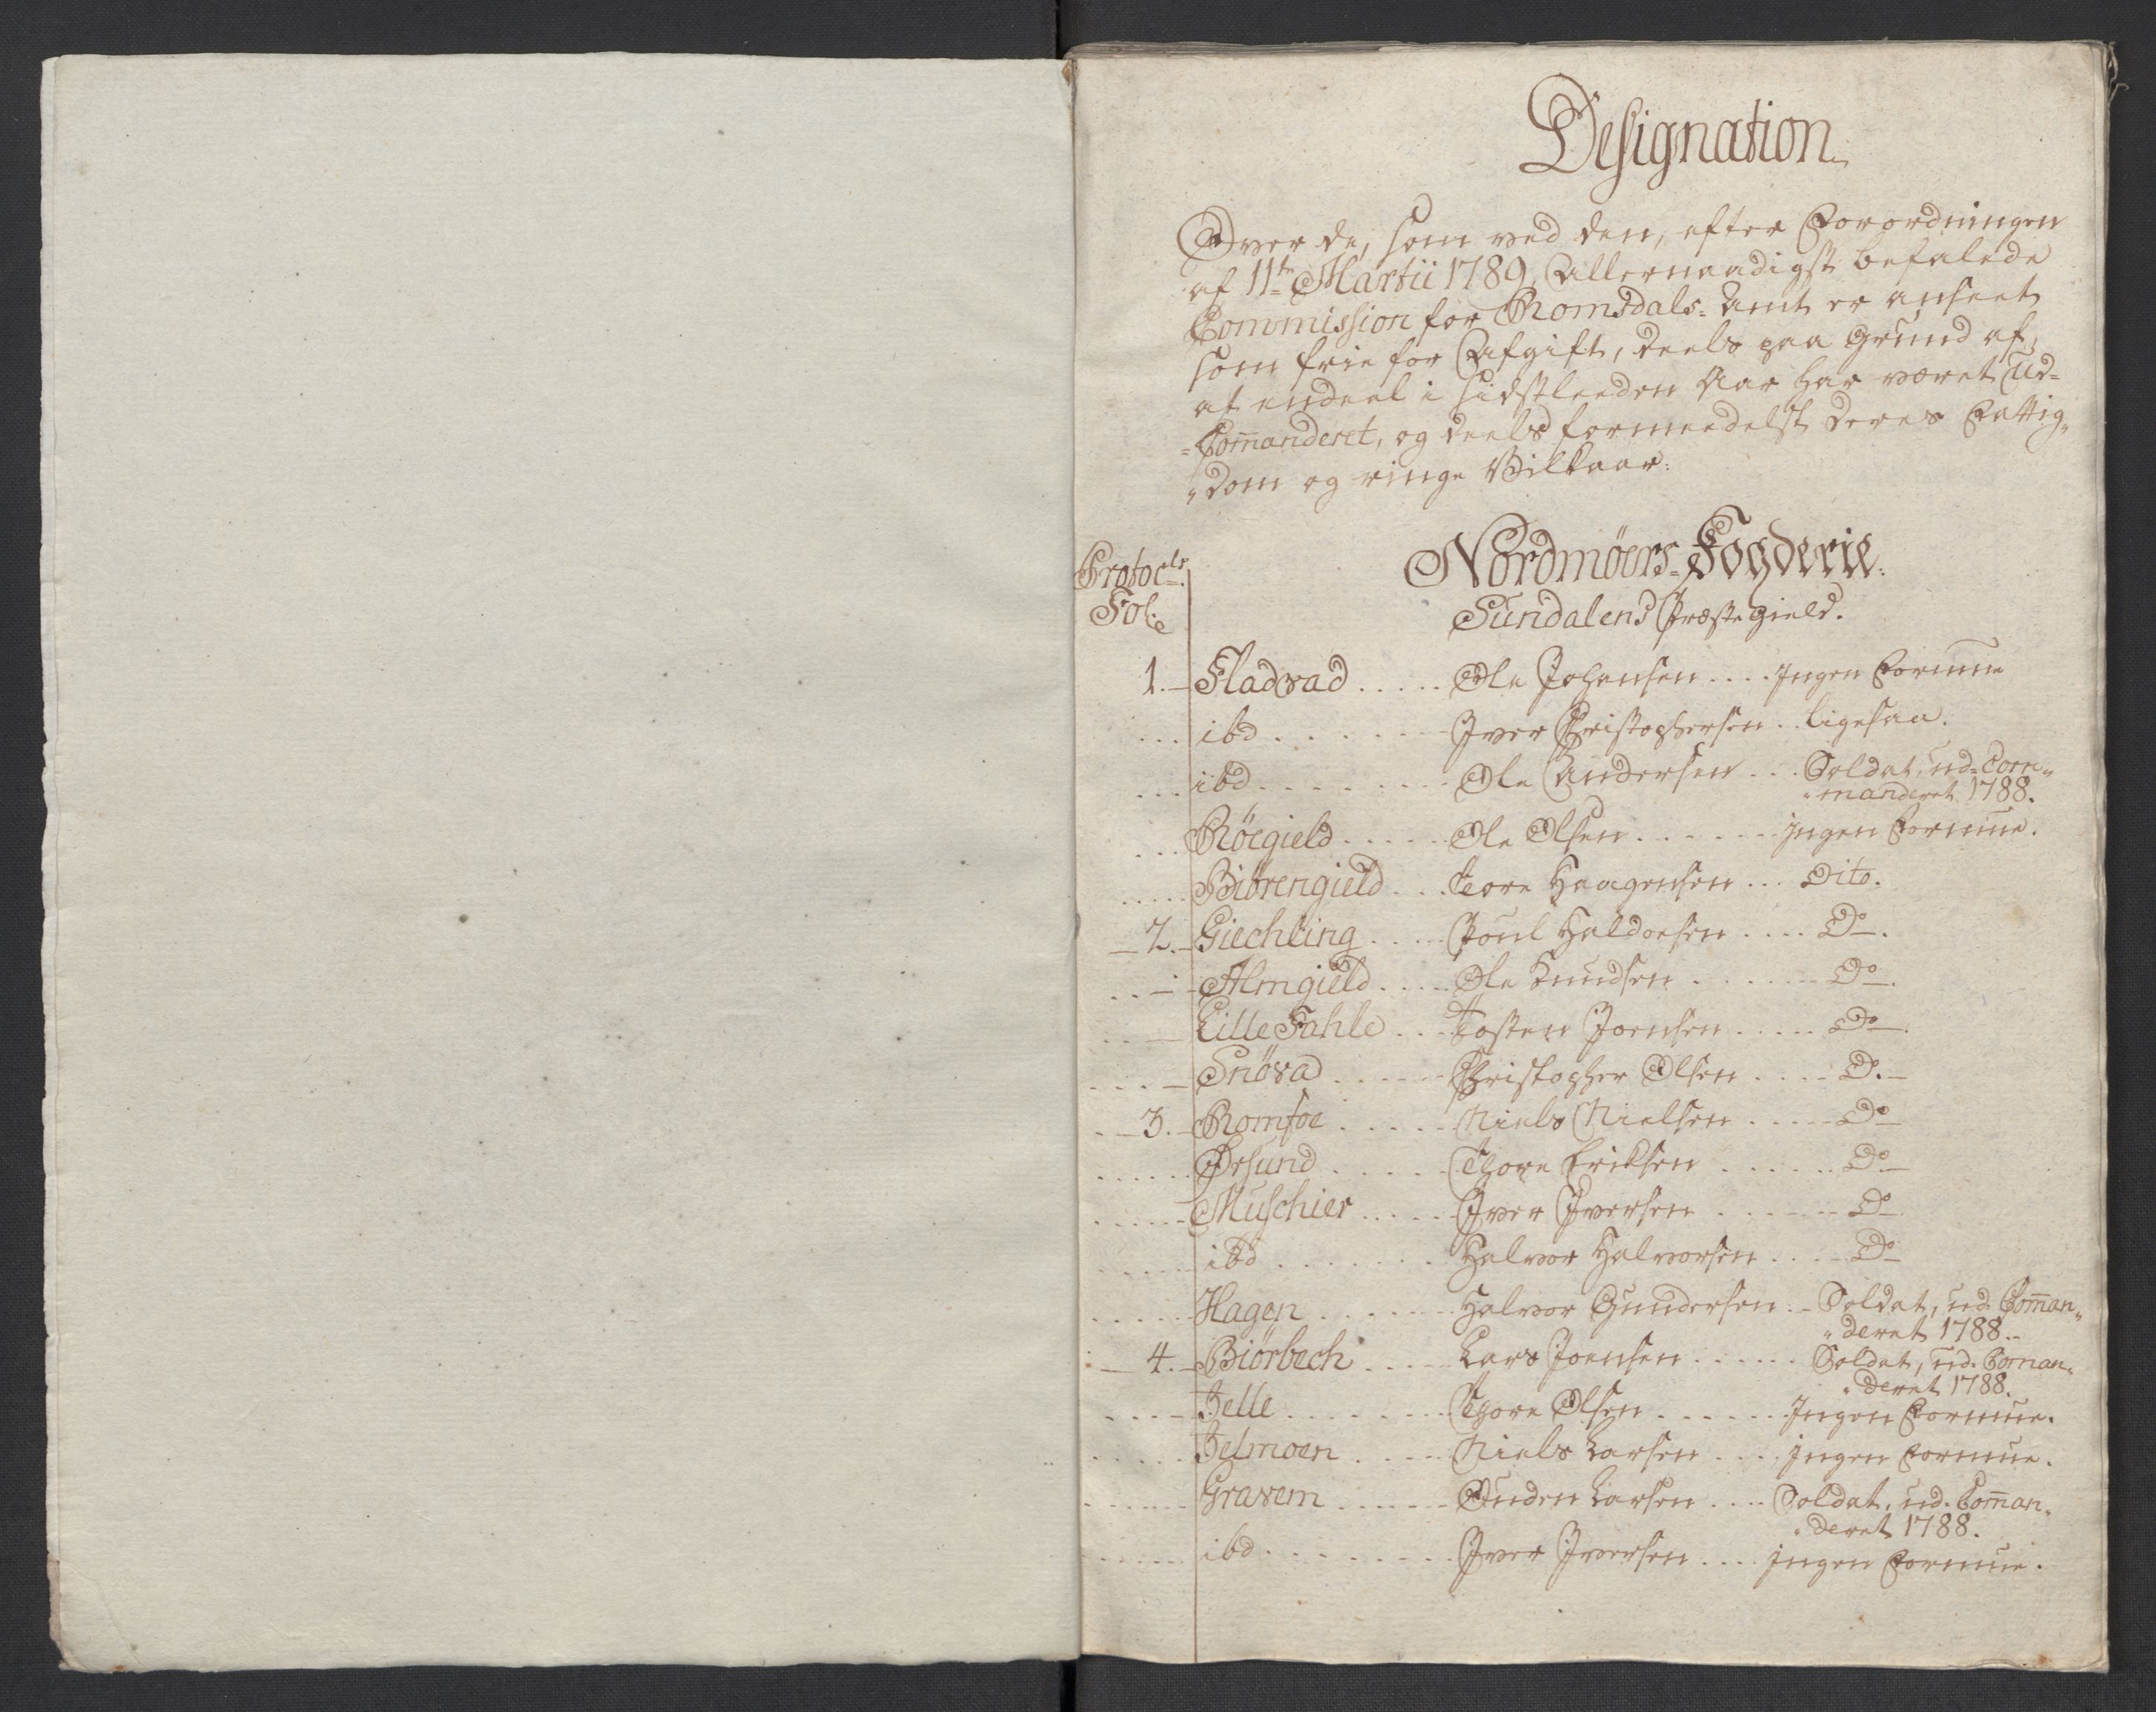 Designation
Over de, som ved den, efter Forordningen
af 11te Martii 1789, Allernaadigst befalede
Commission for Romsdals-Amt er anseet
som frie for Afgift, deels paa Grund af,
at endeel i sidstleeden Aar har været Ud-
-Com̄anderet, og deels formeedelst deres Fattig-
-dom og ringe Vilkaar.
Nordmöers-Fogderie.
Protocls.
Fol.
Sundalens Præstegield.
1. Fladvad ..... Ole Johansen .... Ingen Formue
... ibd ...... Iver Christophersen .. ligesaa.
... ibd ....... Ole Andersen ... Soldat, ud-Com-
-manderet 1788.
... Röegield ..... Ole Olsen ...... Ingen Formue.
..... Biörengield ... Tore Haagensen ... Dito.
2. Giechling .... Poul Haldorsen .... Do.
... Almgield .... Ole Knudsen ...... Do.
... Lille Fahle ... Tosten Joensen ..... Do.
... Snöva ...... Christopher Olsen .... Do.
3. Romfoe ..... Niels Nielsen .... Do
..... Øesund ..... Thore Eriksen ...... Do
..... Muschier ..... Iver Iversen ...... Do
..... ibd ....... Halvor Halvorsen .... Do
..... Hagen ...... Halvor Gundersen .. Soldat, ud-Com̄an-
-deret 1788.
4. Biörbech .... Lars Joensen ...... Soldat, ud-Com̄an-
-deret 1788.
.... Jelle ....... Thore Olsen ...... Ingen Formue.
..... Jelmoen .... Niels Larsen ... Ingen Formue.
..... Gravem ...... Anden Larsen .... Soldat, ud-Com̄an-
-deret 1788.
..... ibd ........ Iver Iversen .... Ingen Formue.